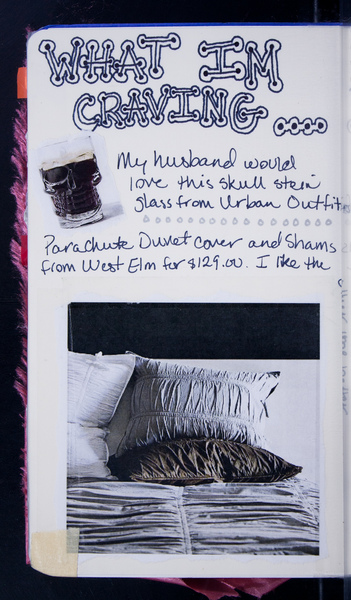 WHAT IM
CRAVING....
My husband would
love this skull stein
glass from Urban Outfit
Parachute Duvet cover and Shams
from West Elm for $129.00. I like the